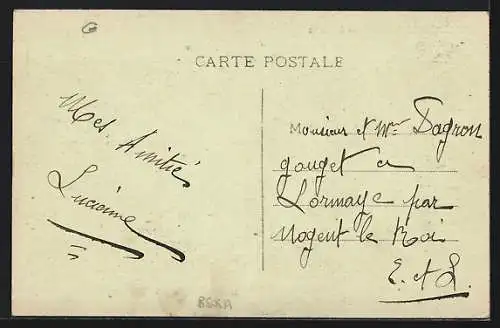 CARTE POSTALE
Mes Amitiés
Lucienne
Monsieur et Mme Dagron
gouget a
Lormaye par
Nogent le Roi
E. et L.